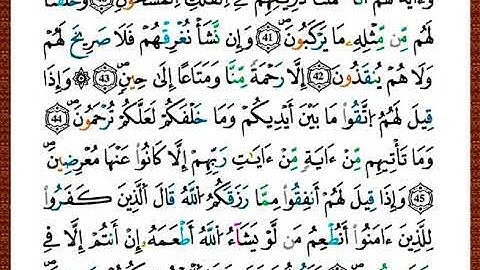 فِي الْفُلْكِ الْمَشْحُونِ وَخَلَقْنَا
لَهُم مِّن مِّثْلِهِۦ مَا يَرْكَبُونَ 41 وَإِن نَّشَأْ نُغْرِقْهُمْ فَلَا صَرِيخَ لَهُمْ
وَلَا هُمْ يُنقَذُونَ 42 إِلَّا رَحْمَةً مِّنَّا وَمَتَاعًا إِلَىٰ حِينٍ 43 ۞ وَإِذَا
قِيلَ لَهُمُ اتَّقُوا۟ مَا بَيْنَ أَيْدِيكُمْ وَمَا خَلْفَكُمْ لَعَلَّكُمْ تُرْحَمُونَ 44
وَمَا تَأْتِيهِم مِّنْ ءَايَةٍ مِّنْ ءَايَٰتِ رَبِّهِمْ إِلَّا كَانُوا۟ عَنْهَا مُعْرِضِينَ
45 وَإِذَا قِيلَ لَهُمْ أَنفِقُوا۟ مِمَّا رَزَقَكُمُ اللَّهُ قَالَ الَّذِينَ كَفَرُوا۟
لِلَّذِينَ ءَامَنُوا۟ أَنُطْعِمُ مَن لَّوْ يَشَآءُ اللَّهُ أَطْعَمَهُۥ إِنْ أَنتُمْ إِلَّا فِي